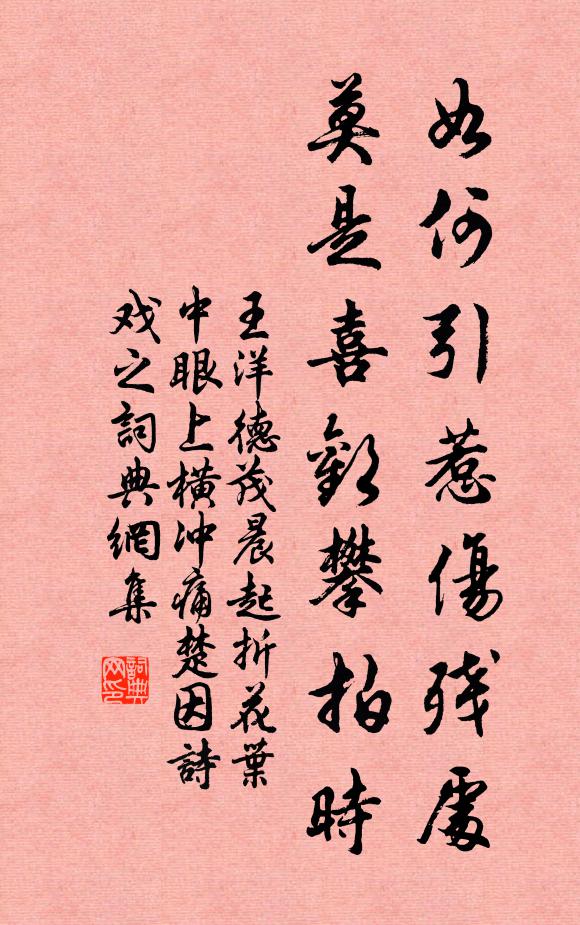 如何引惹傷残處
莫是喜歡攀拍時
王洋德茂晨起折花葉
中眼上橫冲痛楚因詩
戏之詞典網集
詞典网印